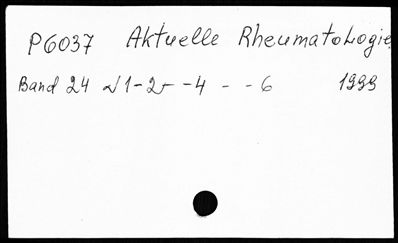 P6037 Aktuelle Rheumatologie
Band 24 N 1-2- -4 - - 6 1999